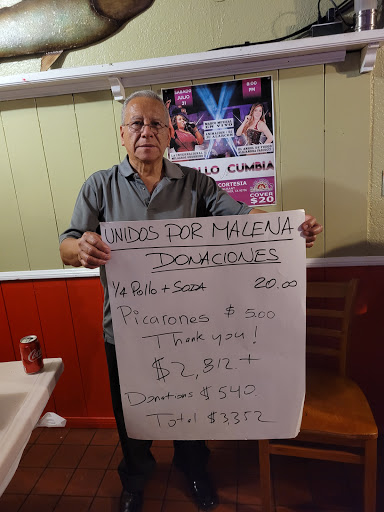 SABADO
JULIO
31
8:00
PM
LLO CUMBIA
CORTESIA
COVER
$20
UNIDOS POR MALENA
DONACIONES
1/4 Pollo + SODA 20.00
Picarones $ 5.00
Thank you!
$2,812.+
Donations $540
Total $3,352